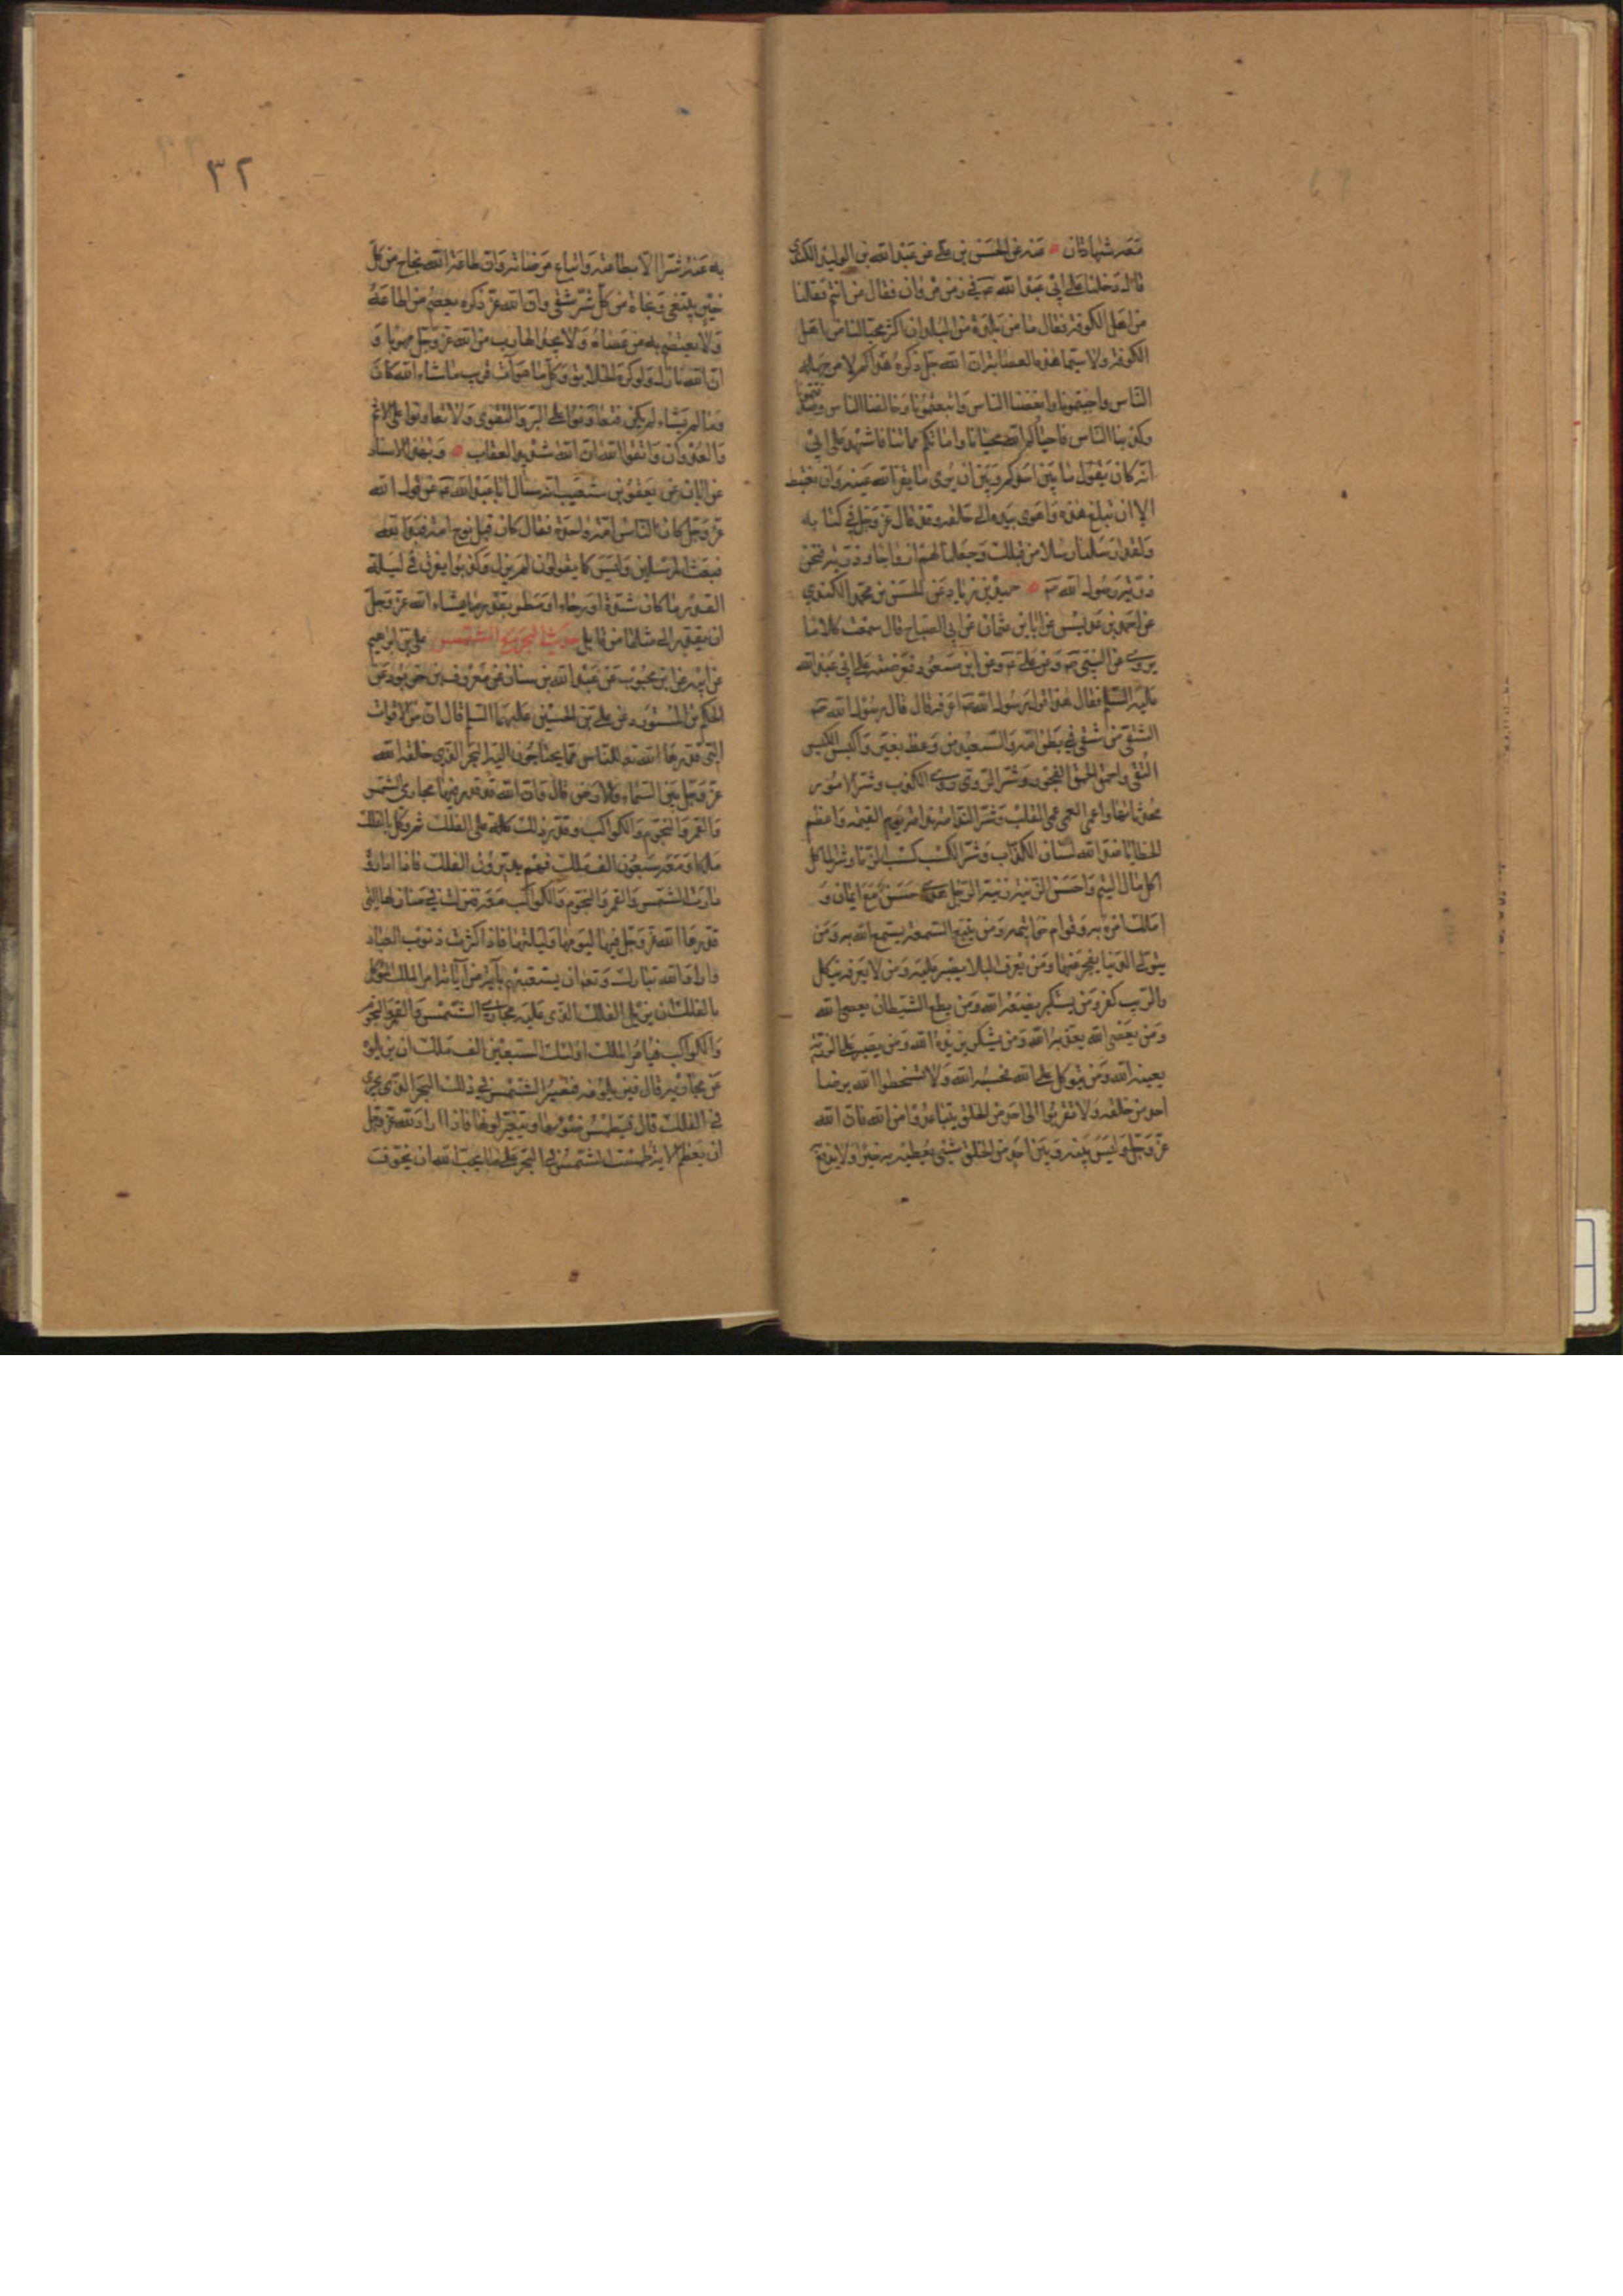 معه شهادتان عنه عن الحسن بن علي عن عبد الله بن الوليد الكندي
قال دخلنا على ابي عبد الله ع في زمن مروان فقال من انتم فقلنا
من اهل الكوفة فقال ما من بلدة من البلدان اكثر محبا لنا من اهل
الكوفة ولا سيما هذه العصابة ان الله جل ذكره هداكم لامر جهله
الناس واحببتمونا وابغضنا الناس واتبعتمونا وخالفنا الناس وصدقتمونا
وكذبنا الناس فاحياكم الله محيانا واماتكم مماتنا فاشهد على ابي
انه كان يقول ما بين احدكم وبين ان يرى ما يقر الله عينه وان يغتبط
الا ان تبلغ هذه واهوى بيده الى حلقه وقد قال عز وجل في كتابه
ولقد ارسلنا رسلا من قبلك وجعلنا لهم ازواجا وذرية فنحن
ذرية رسول الله ص حميد بن زياد عن الحسن بن محمد الكندي
عن احمد بن عديس عن ابان بن عثمان عن ابي الصباح قال سمعت كلاما
يروى عن النبي ص وعن علي ع وعن ابن مسعود فعرضته على ابي عبد الله
عليه السلم فقال هذا قول رسول الله ص اعرفه قال قال رسول الله ص
الشقي من شقي في بطن امه والسعيد من وعظ بغيره واكيس الكيس
التقى واحمق الحمق الفجور وشر الروي روي الكذب وشر الامور
محدثاتها واعمى العمى عمى القلب وشر الندامة ندامة يوم القيمة واعظم
الخطايا عند الله لسان الكذاب وشر الكسب كسب الزنا وشر الماكل
اكل مال اليتيم واحسن الزينة زينة الرجل هدى حسن مع ايمان و
املك امره به وقوام خواتيمه ومن يتبع السمعة يسمع الله به ومن
يتولى الدنيا يعجز عنها ومن يعرف البلاء يصبر عليه ومن لا يعرفه ينكل
والريب كفر ومن يستكبر يضعه الله ومن يطع الشيطان يعصى الله
ومن يعصى الله يعذبه الله ومن يشكر يزيده الله ومن يصبر على الرزية
يعينه الله ومن يتوكل على الله فحسبه الله ولا تسخطوا الله برضا
احد من خلقه ولا تقربوا الى احد من الخلق يتباعدوا من الله فان الله
عز وجل وليس بينه وبين احد من الخلق شيئ يعطيه به خيرا ولا يدفع
٣٢
به عنه شرا الا بطاعته واتباع مرضاته وان طاعة الله نجاح من كل
خير يبتغى ونجاة من كل شر يتقى وان الله عز ذكره يعصم من اطاعه
ولا يعتصم به من عصاه ولا يجد الهارب من الله عز وجل مهربا و
ان امر الله نازل ولو كره الخلائق وكل ما هو آت قريب ما شاء الله كان
وما لم يشاء لم يكن فتعاونوا على البر والتقوى ولا تعاونوا على الاثم
والعدوان واتقوا الله ان الله شديد العقاب وبهذا الاسناد
عن ابان عن يعقوب بن شعيب انه سال ابا عبد الله ع عن قول الله
عز وجل كان الناس امة واحدة فقال كان قبل نوح امة ضلال
فبعث المرسلين وليس كما يقولون لم يزل وكذبوا يفرق في ليلة
القدر ما كان شدة او رخاء او مطر بقدر ما يشاء الله عز وجل
ان يقدر الى مثلها من قابل حديث البحر مع الشمس علي بن ابرهيم
عن ابيه عن ابن محبوب عن عبد الله بن سنان عن معروف بن خربوذ عن
الحكم بن المستورد عن علي بن الحسين عليهما السلم قال ان من الاقوات
التي قدرها الله للناس مما يحتاجون اليه البحر الذي خلقه الله
عز وجل بين السماء والارض قال وان الله قد قدر فيها مجاري الشمس
والقمر والنجوم والكواكب وقدر ذلك كله على الفلك ثم وكل بالفلك
ملكا ومعه سبعون الف ملك فهم يديرون الفلك فاذا اداروه
دارت الشمس والقمر والنجوم والكواكب معه فنزلت في منازلها التي
قدرها الله عز وجل فيها ليومها وليلتها فاذا كثرت ذنوب العباد
واراد الله تبارك وتعالى ان يستعتبهم بآية من آياته امر الملك الموكل
بالفلك ان يزيل الفلك الذي عليه مجاري الشمس والقمر والنجوم
والكواكب فيامر الملك اولئك السبعين الف ملك ان يزيلوه
عن مجاريه قال فيزيلونه فتصير الشمس في ذلك البحر الذي يجري
في الفلك قال فيطمس ضوءها ويتغير لونها فاذا اراد الله عز وجل
ان يعظم الاية طمست الشمس في البحر على ما يحب الله ان يخوف